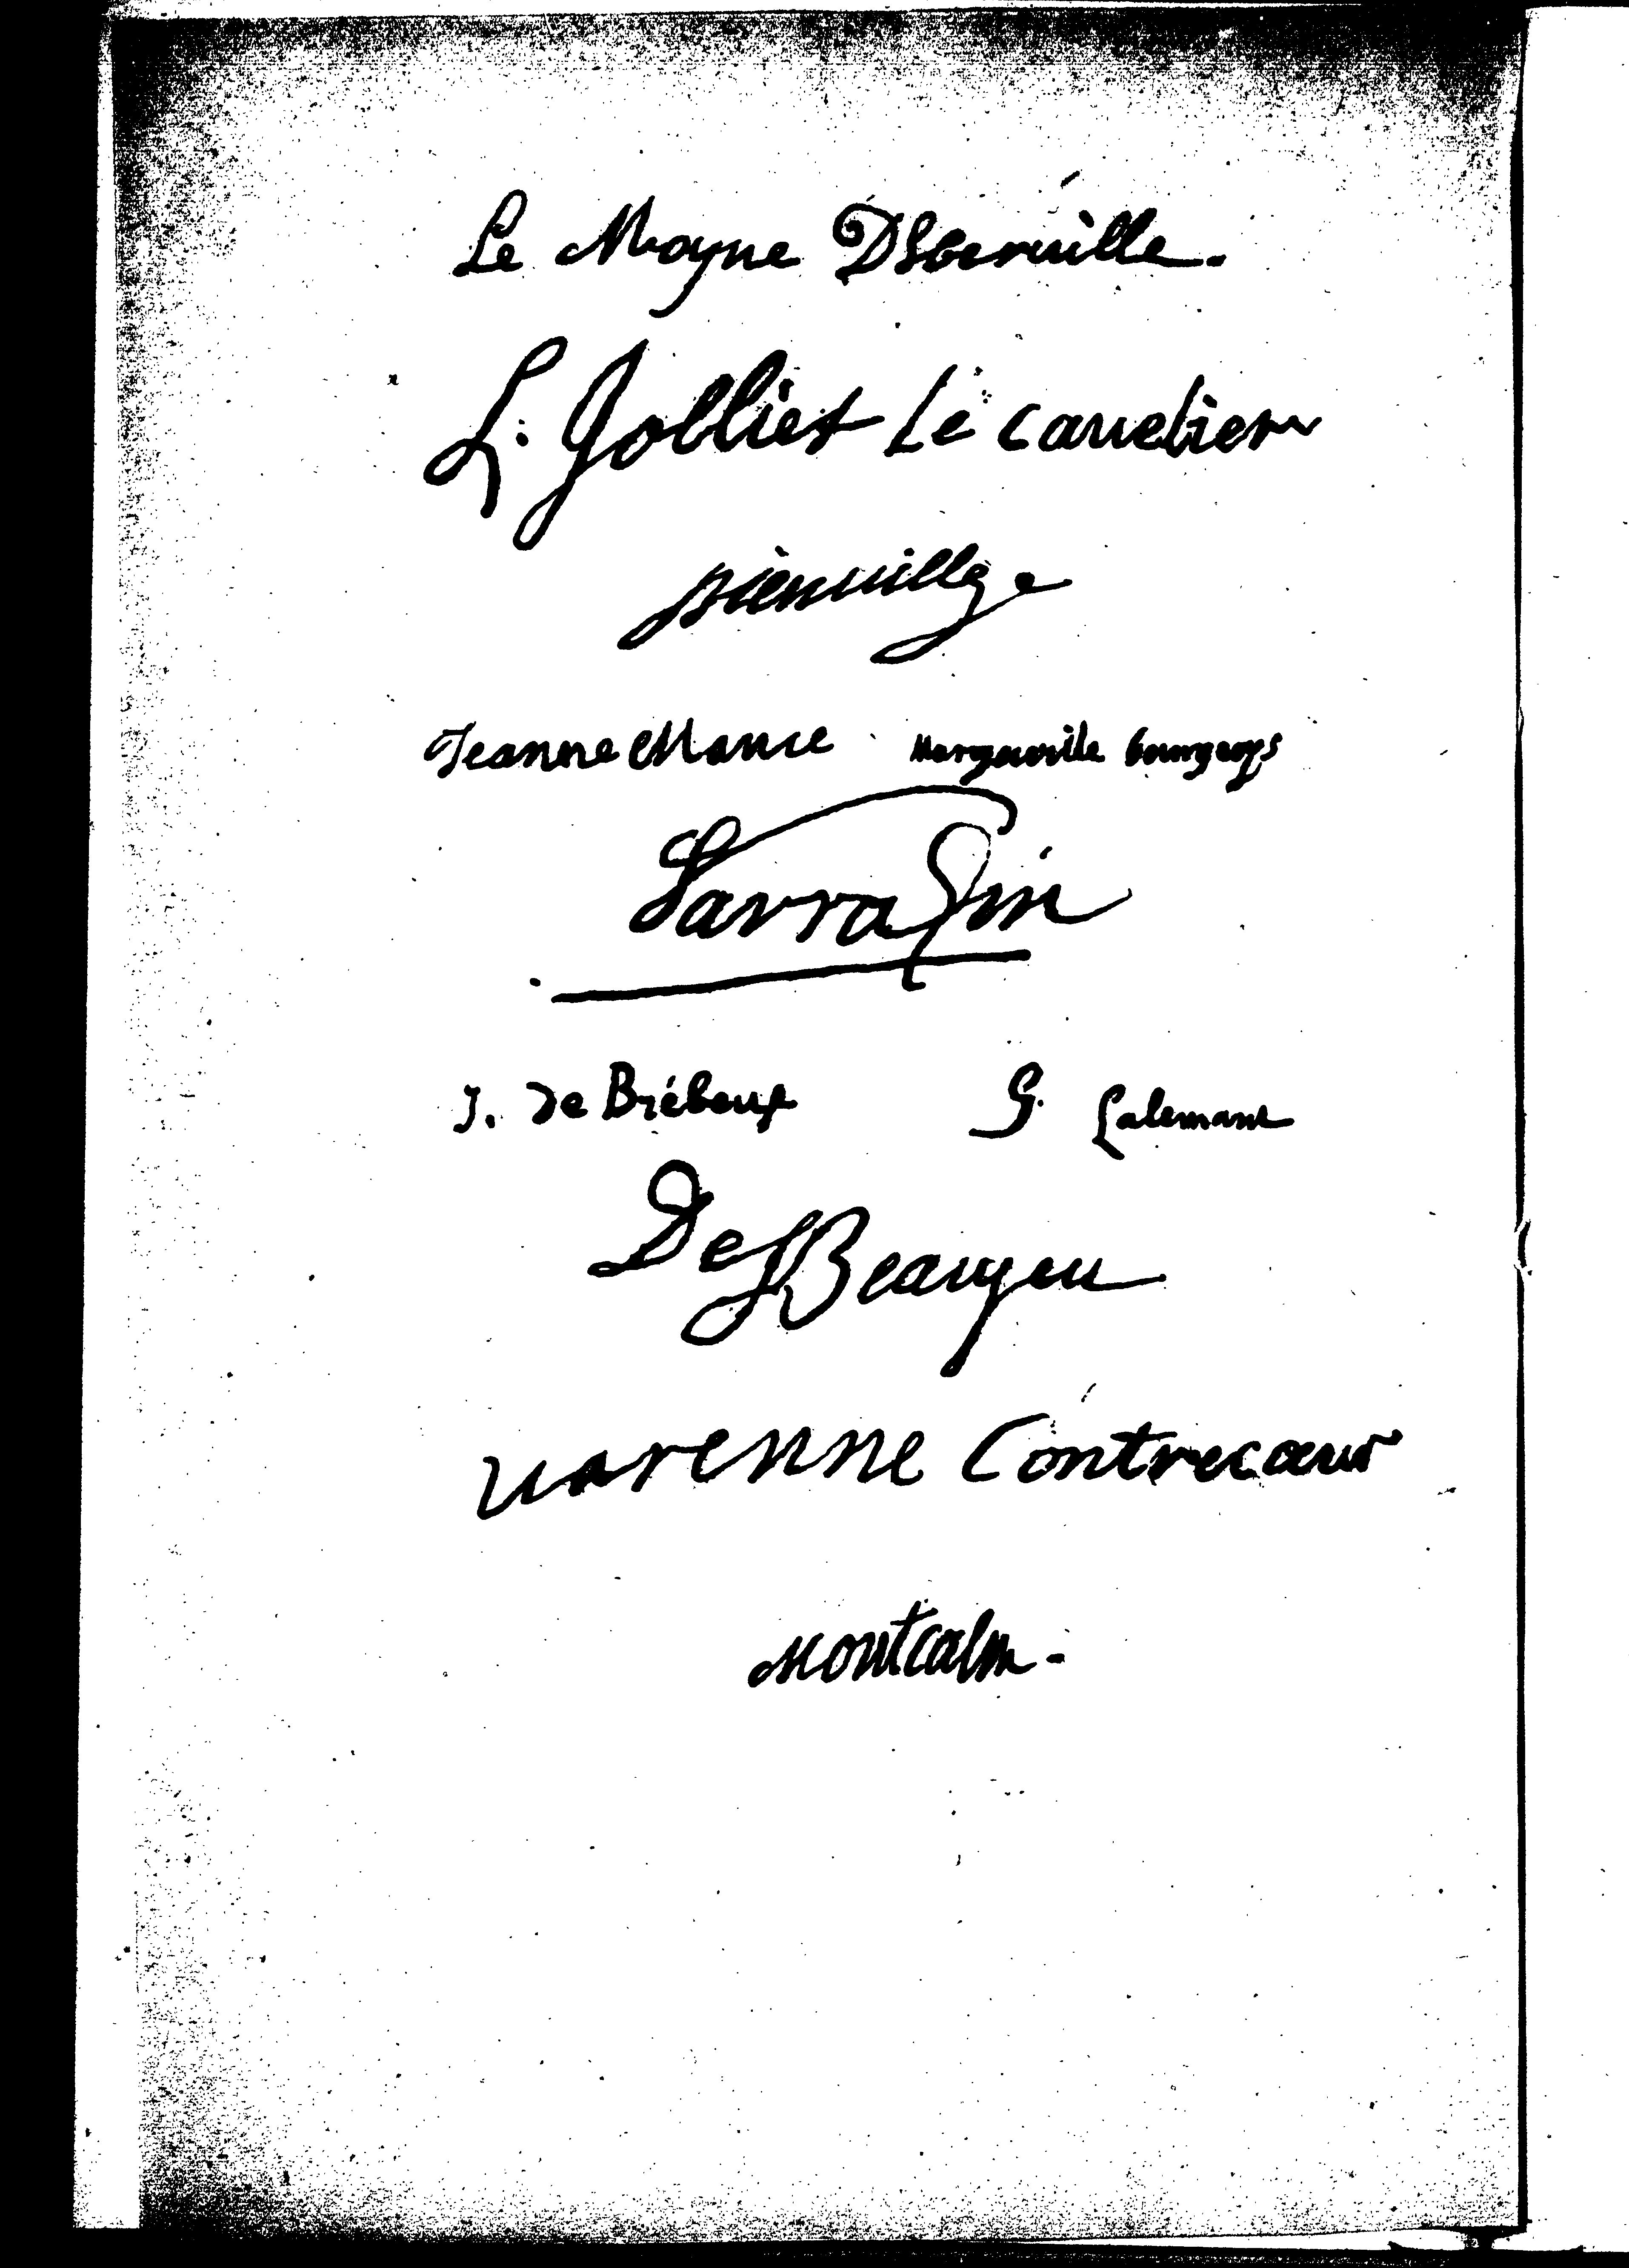 Le Moyne DIberuille.
L. Jolliet Le cauelier
bienuille
Jeanne Mance Marguerite bourgeoys
Sarrasin
J. de Brébeuf G. Lalemant
De Beaujeu
varenne Contrecœur
Montcalm.